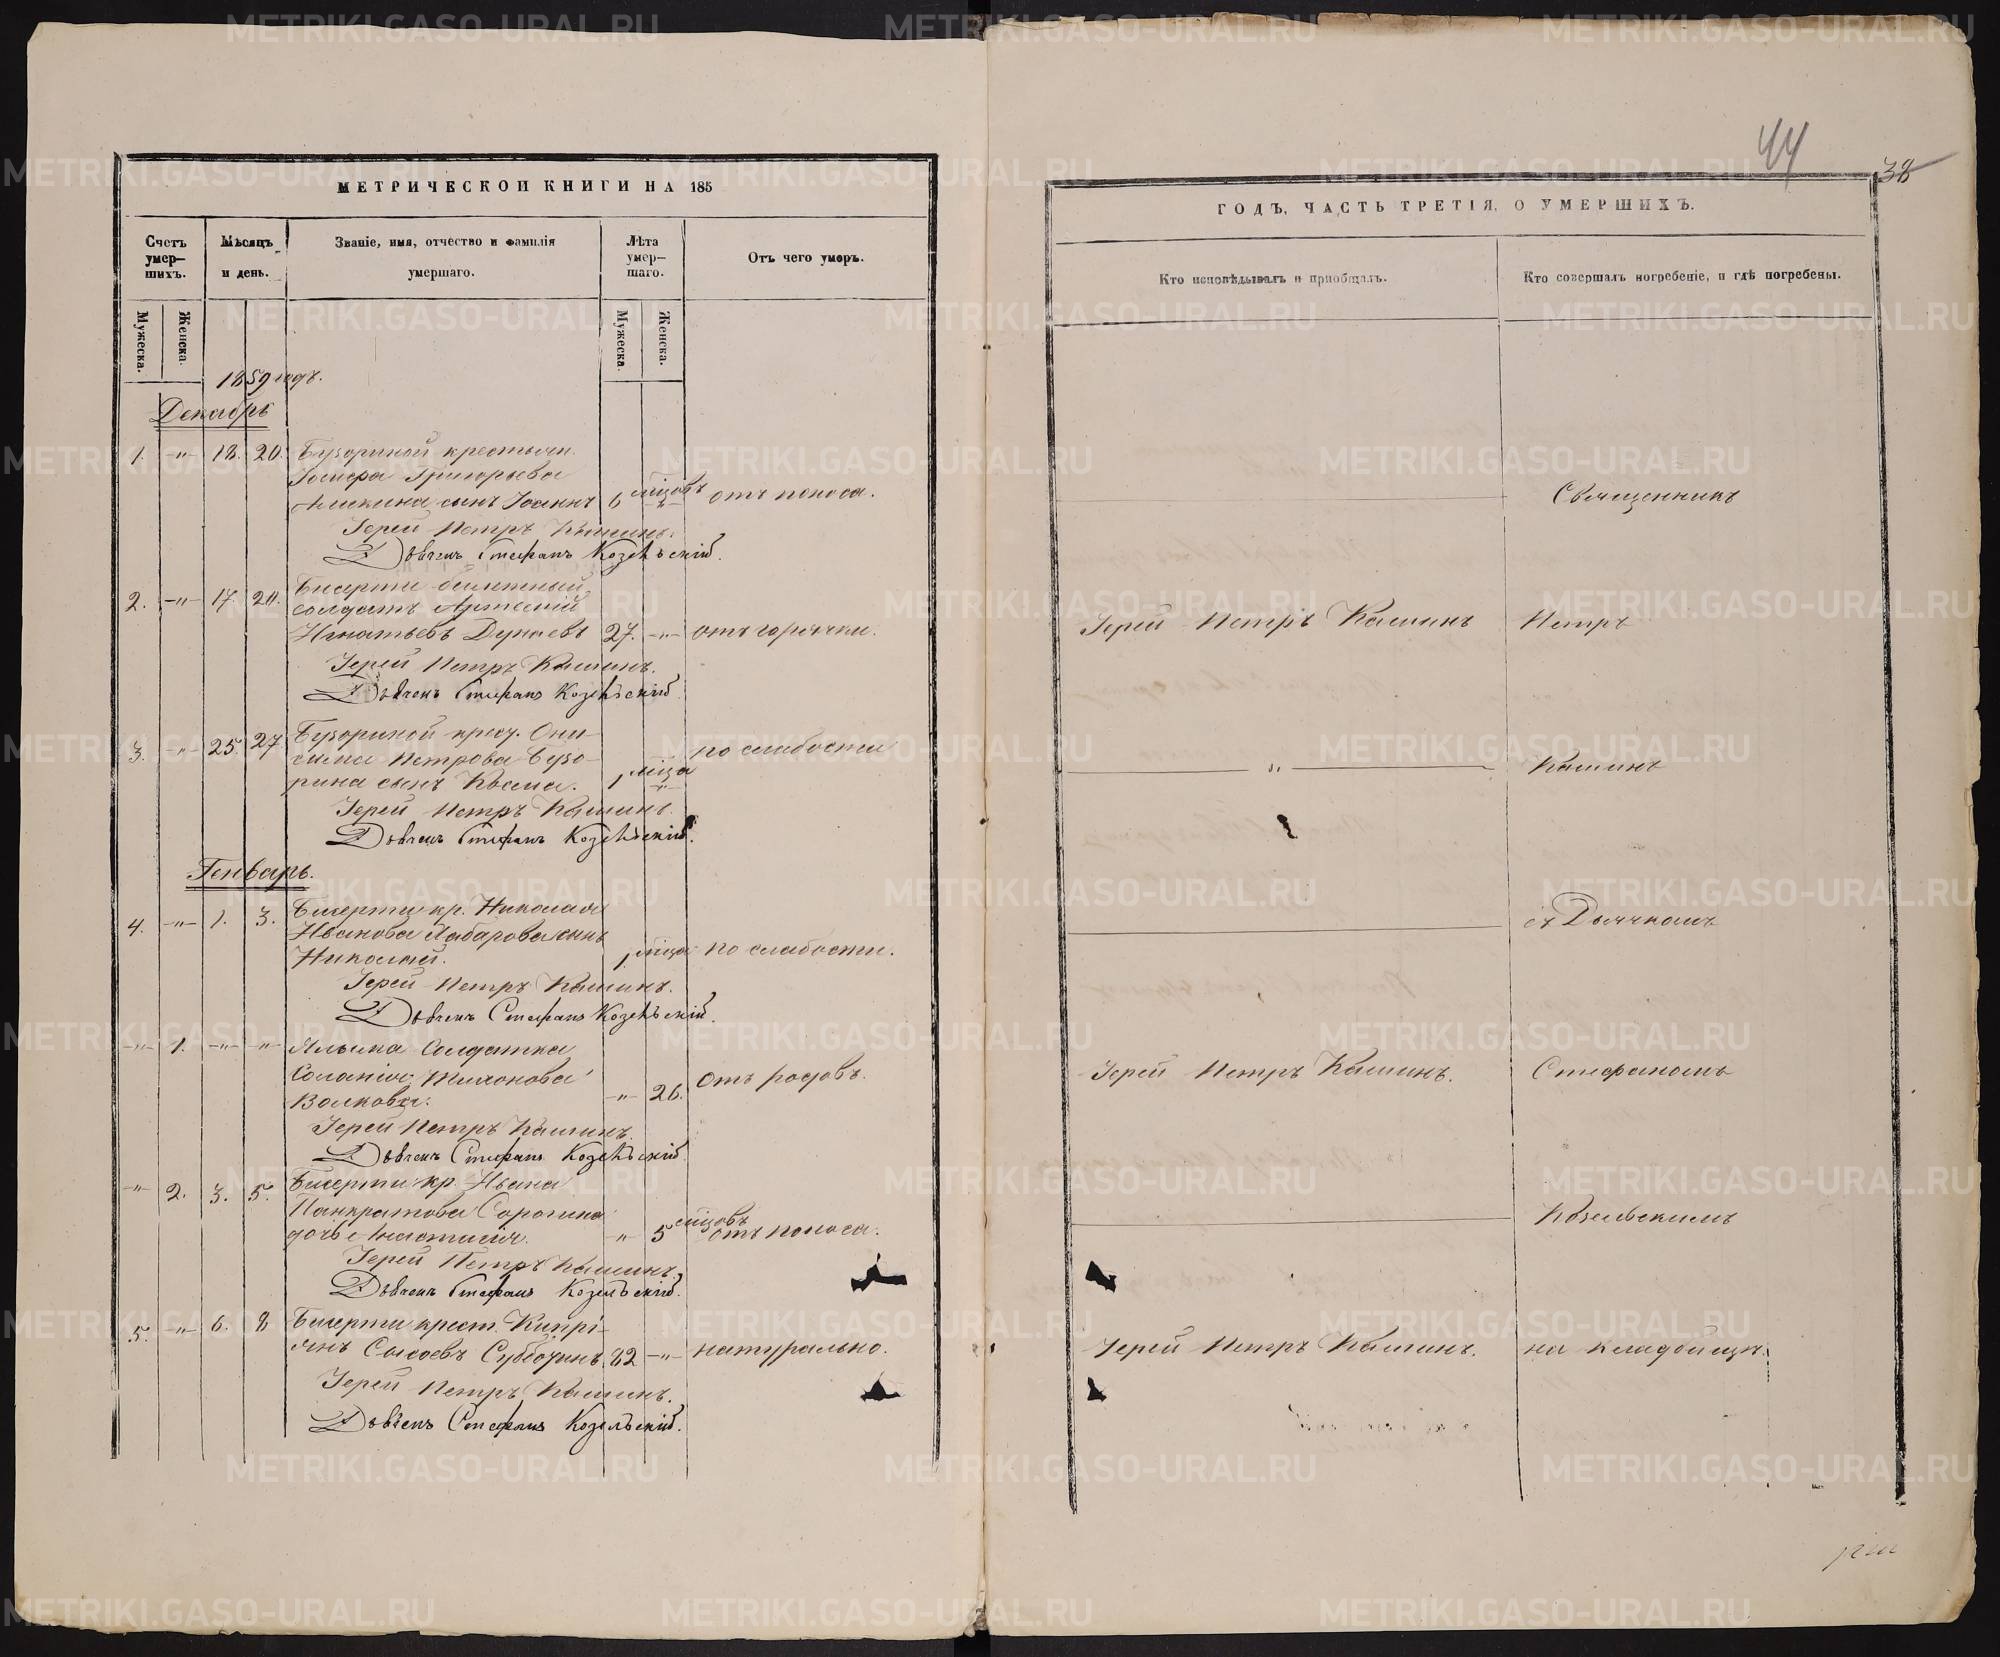 МЕТРИЧЕСКОЙ КНИГИ НА 185
Счетъ умер-шихъ.
Мѣсяцъ и день.
Званіе, имя, отчество и фамилія умершаго.
Лѣта умер-шаго.
Отъ чего умеръ.
Мужеска. Женска. Мужеска. Женска.
1859 годъ.
Декабрь
1. -"- 18. 20. Бузориной крестьян.
Григорьева
сынъ Іоаннъ 6 мѣцовъ -"- отъ поноса.
Іерей Петръ Кашинъ.
Дьячекъ Стефанъ Козельскій.
2. -"- 17. 20. Бисерти билетный
солдатъ Артемій
Игнатьевъ Дунаевъ 27. -"- отъ горячки.
Іерей Петръ Кашинъ.
Дьячекъ Стефанъ Козельскій.
3. -"- 25. 27. Бузориной крест. Они-
сима Петрова Бузо-
рина сынъ Косма. 1 мѣца -"- по слабости
Іерей Петръ Кашинъ.
Дьячекъ Стефанъ Козельскій.
Генварь.
4. -"- 1. 3. Бисерти кр. Николая
Иванова сынъ
Николай. 1 мѣца по слабости.
Іерей Петръ Кашинъ.
Дьячекъ Стефанъ Козельскій.
-"- 1. -"- -"- Солдатка
Соломія Тихонова
Волкова. -"- 26. отъ родовъ.
Іерей Петръ Кашинъ.
Дьячекъ Стефанъ Козельскій.
-"- 2. 3. 5. Бисерти кр. Ивана
Панкратова Сорокина
дочь Анастасія. -"- 5 мѣцовъ отъ поноса.
Іерей Петръ Кашинъ.
Дьячекъ Стефанъ Козельскій.
5. -"- 6. 8 Бисерти крест. Кипрі-
янъ Сысоевъ Субботинъ 82 -"- натурально.
Іерей Петръ Кашинъ.
Дьячекъ Стефанъ Козельскій.
44
38
ГОДЪ, ЧАСТЬ ТРЕТІЯ, О УМЕРШИХЪ.
Кто исповѣдывалъ и пріобщалъ.
Кто совершалъ погребеніе, и гдѣ погребены.
Священникъ
Іерей Петръ Кашинъ Петръ
-"- Кашинъ
съ Дьячкомъ
Іерей Петръ Кашинъ. Стефаномъ
Козельскимъ
Іерей Петръ Кашинъ. на кладбищѣ.
METRIKI.GASO-URAL.RU